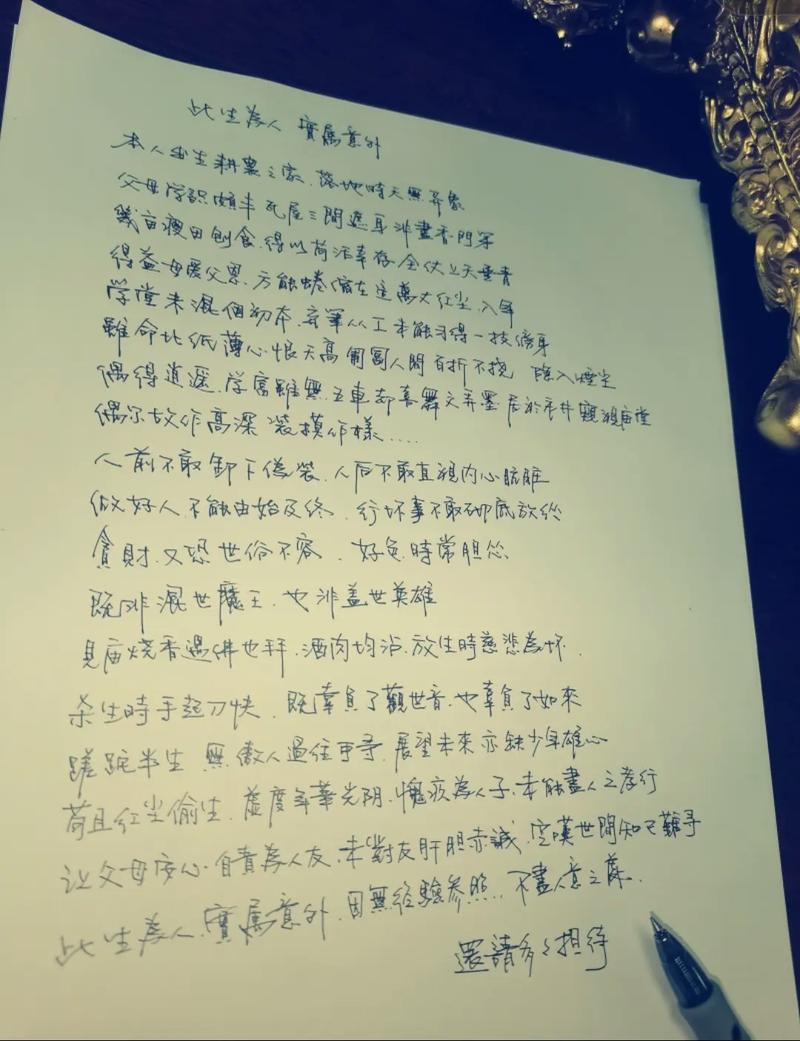 此生為人 實属意外
本人出生耕農之家、落地時天無异象
父母学识頗丰 瓦屋三間遮耳 非書香門第
幾亩瘦田刨食、得以苟活幸存 全仗上天垂青
得益母愛父恩、方能蜷缩在這萬丈红尘、入年
学堂未混個初本、弃筆从工 未能习得一技傍身
雖命比纸薄 心恨天高 匍匐人間 百折不挠 隐入煙尘
偶得逍遥、学富雖無五車 却喜舞文弄墨 居於市井 觀望庙堂
偶尔故作高深 装模作樣....
人前不敢卸下偽装、人后不敢直視内心肮脏
做好人不能由始及终、行坏事不敢砌底放纵
貪財、又恐世俗不容、好色、時常胆怂
既非混世魔王、也非盖世英雄
見庙烧香遇佛也拜、酒肉均沾、放生時慈悲為怀、
杀生時手起刀快、既辜負了觀世音、也辜負了如來
蹉跎半生 無傲人過往可寻、展望未來亦缺少年雄心
苟且红尘偷生、虚度年華光阴、愧疚為人子、未能盡人之孝行
让父母安心、自責為人友、未對友肝胆赤誠、空嘆世間知己難寻
此生為人、實属意外、因無经驗参照、不盡人意之處、
還請多多担待